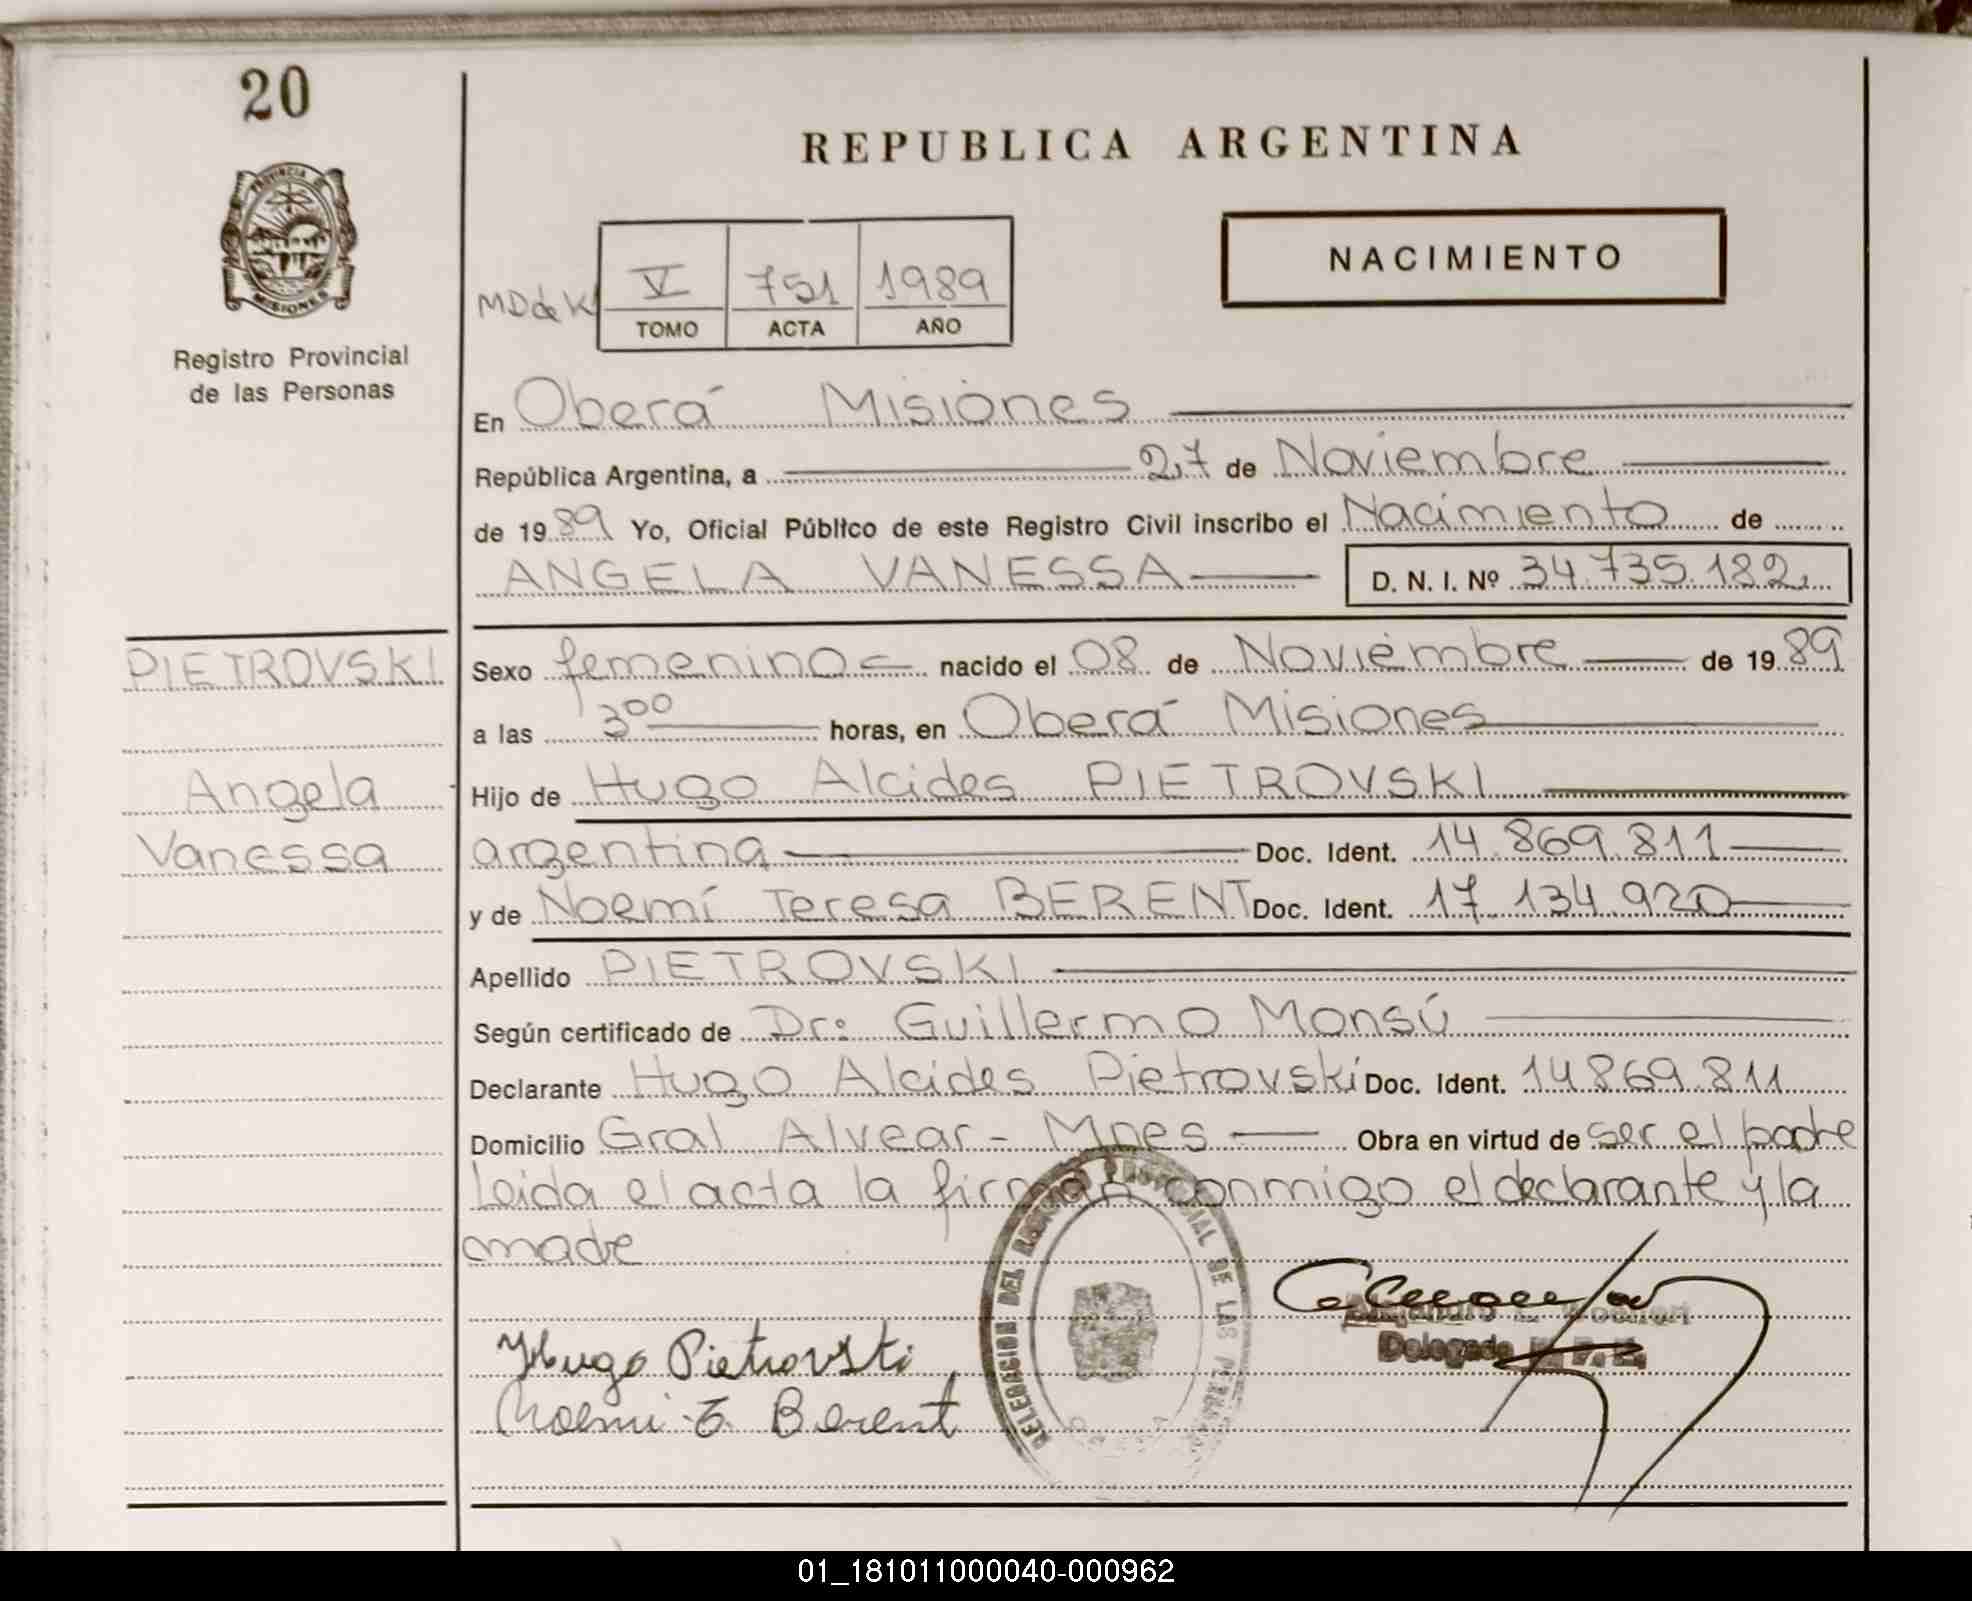 20
PROVINCIA DE
MISIONES
Registro Provincial
de las Personas
REPUBLICA ARGENTINA
NACIMIENTO
MD de K
V 751 1989
TOMO ACTA AÑO
En Oberá Misiones
República Argentina, a 27 de Noviembre
de 1989 Yo, Oficial Público de este Registro Civil inscribo el Nacimiento de
ANGELA VANESSA D. N. I. Nº 34.735.182
PIETROVSKI
Angela
Vanessa
Sexo femenino nacido el 08 de Noviembre de 1989
a las 3 00 horas, en Oberá Misiones
Hijo de Hugo Alcides PIETROVSKI
argentina Doc. Ident. 14.869.811
y de Noemí Teresa BERENT Doc. Ident. 17.134.920
Apellido PIETROVSKI
Según certificado de Dr: Guillermo Monsú
Declarante Hugo Alcides Pietrovski Doc. Ident. 14869.811
Domicilio Gral Alvear - Mnes Obra en virtud de ser el padre
Leida el acta la firman conmigo el declarante y la
madre
DELEGACION DEL REGISTRO PROVINCIAL DE LAS PERSONAS
Delegado
Hugo Pietrovski
Noemi T. Berent
01_181011000040-000962